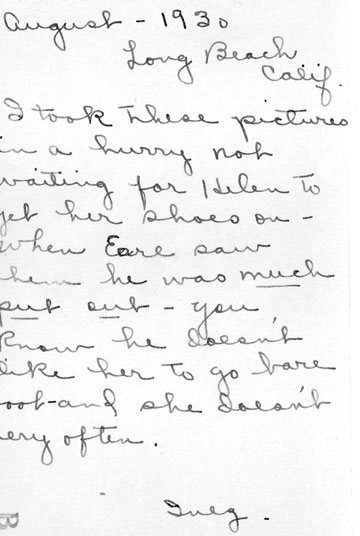 August - 1930
Long Beach
Calif.
I took these pictures
in a hurry not
waiting for Helen to
get her shoes on -
when Earl saw
them he was much
put out - you
know he doesn't
like her to go bare
oot - and she doesn't
ery often.
Inez.
B